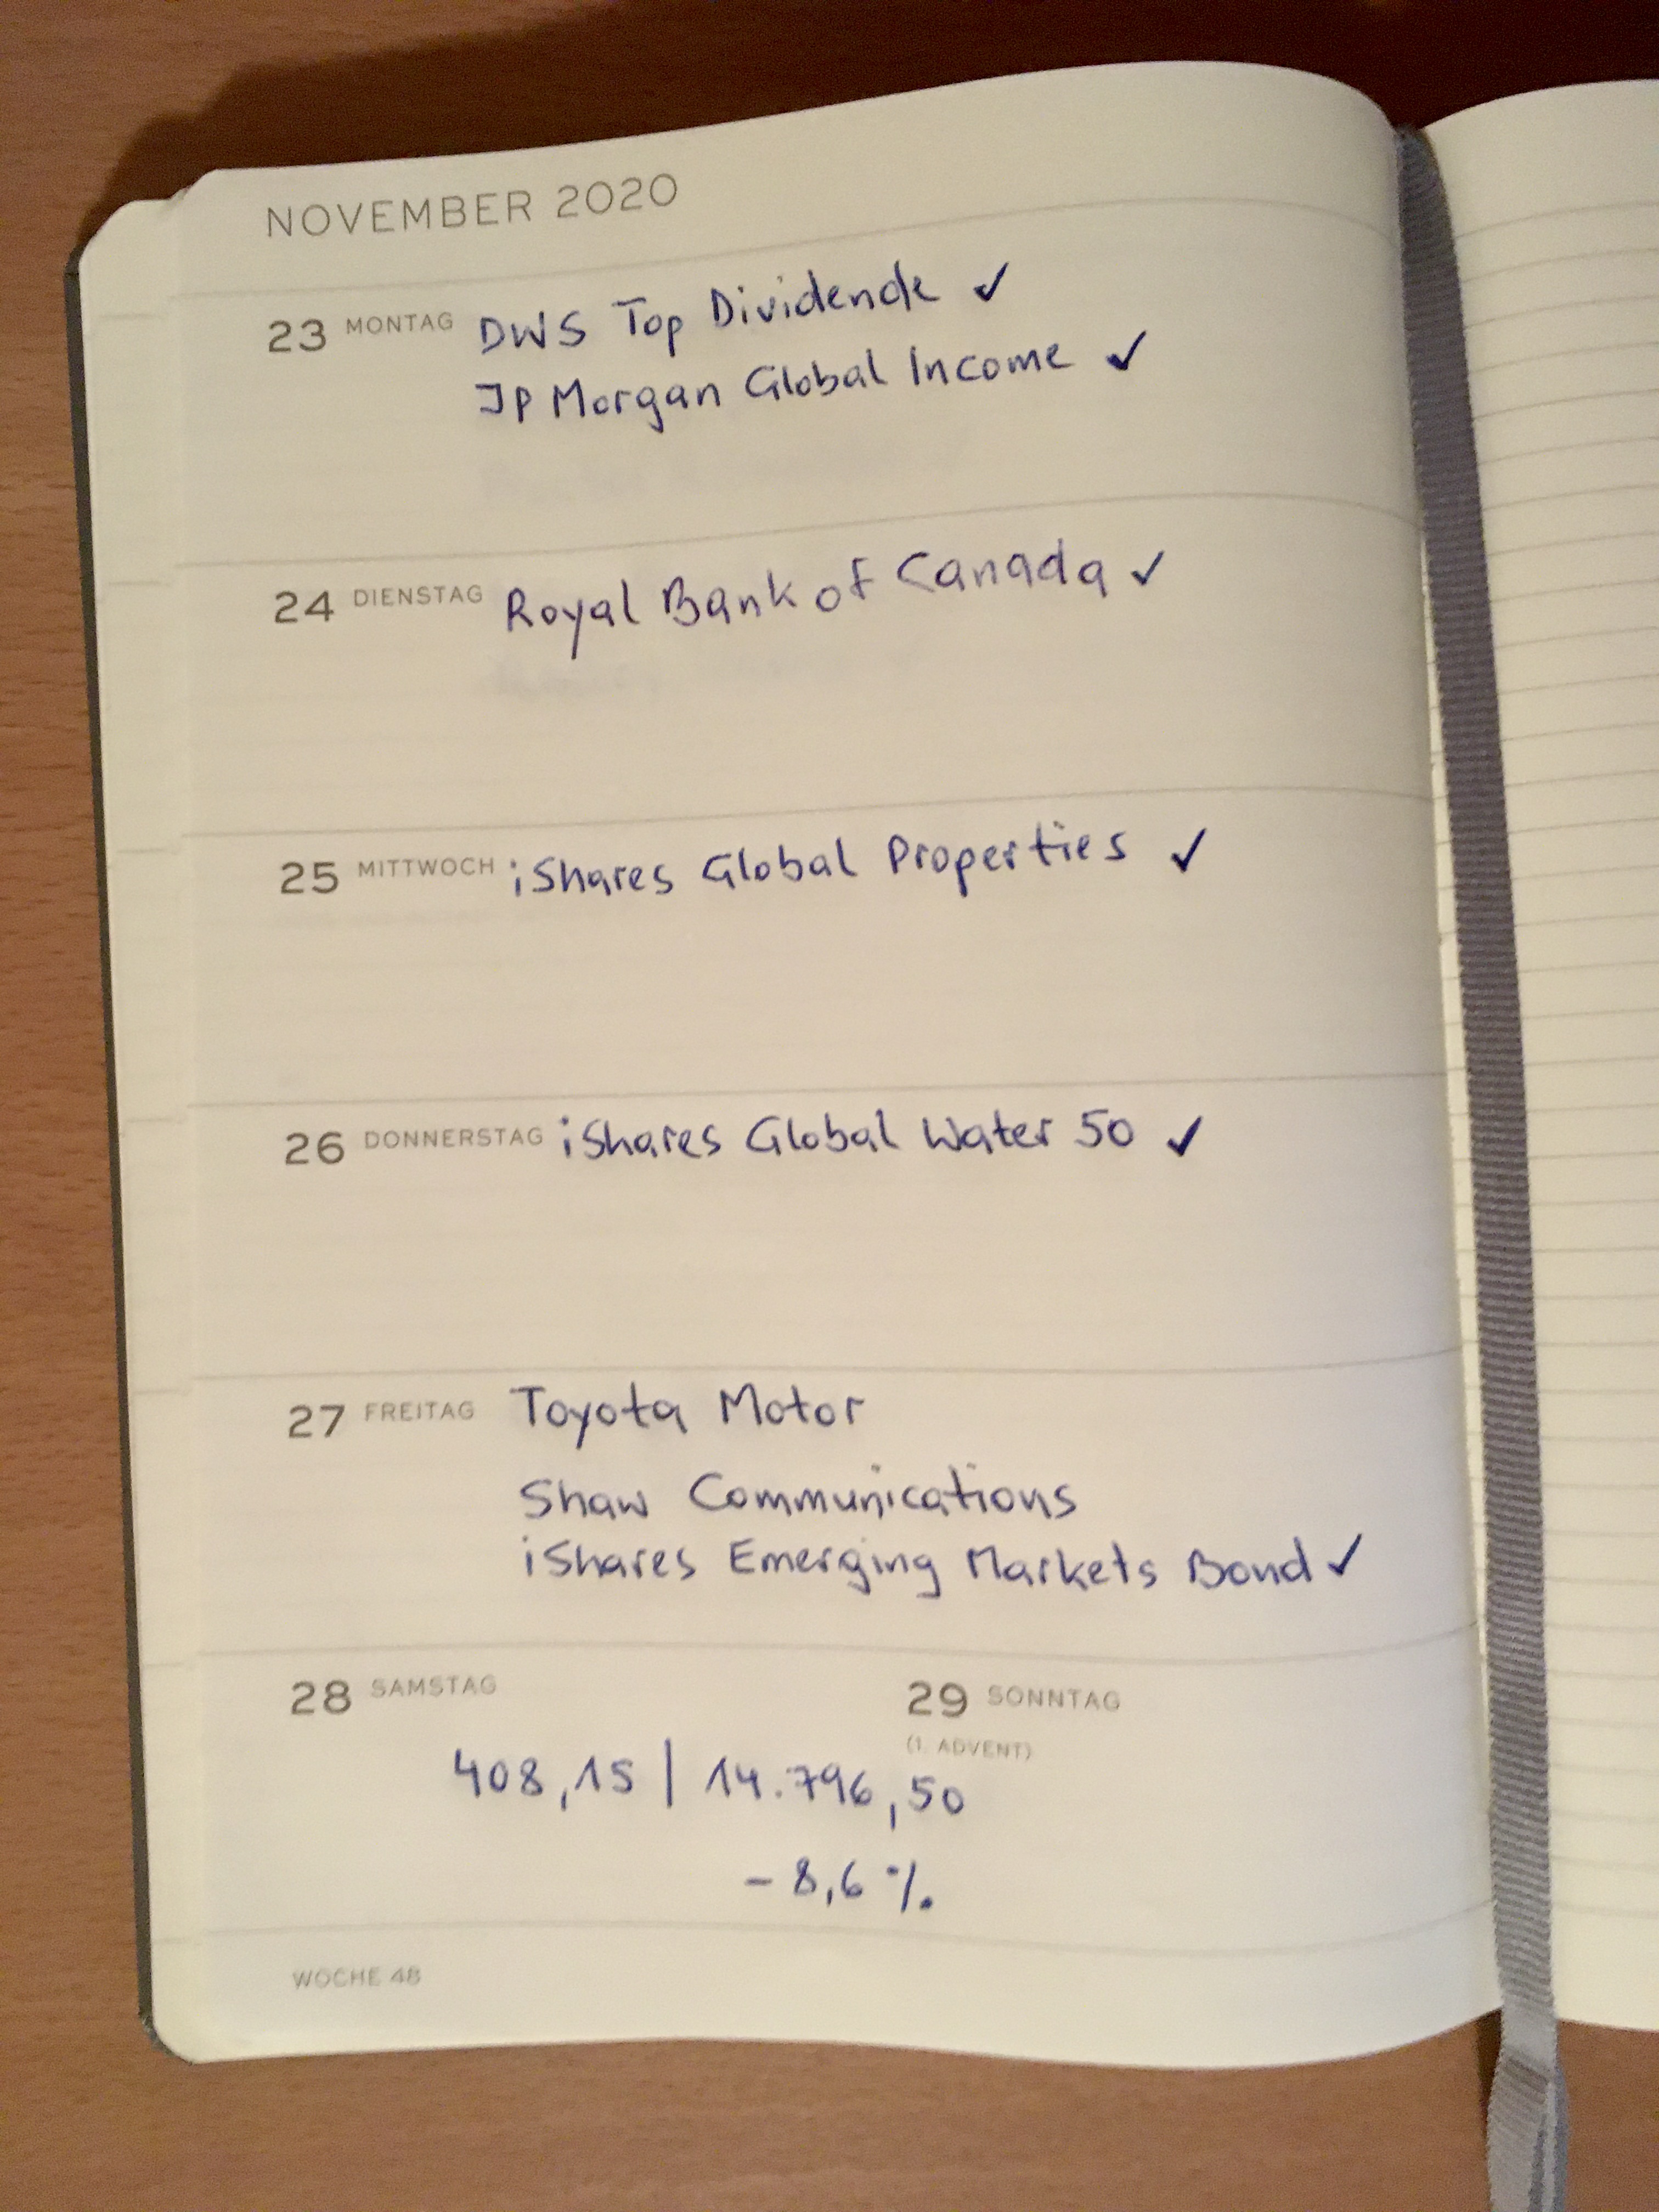 NOVEMBER 2020
23 MONTAG DWS Top Dividende ✓
JP Morgan Global Income ✓
24 DIENSTAG Royal Bank of Canada ✓
25 MITTWOCH iShares Global Properties ✓
26 DONNERSTAG iShares Global Water 50 ✓
27 FREITAG Toyota Motor
Shaw Communications
iShares Emerging Markets Bond ✓
28 SAMSTAG 29 SONNTAG
(1. ADVENT)
408,15 | 14.796,50
- 8,6 %
WOCHE 48